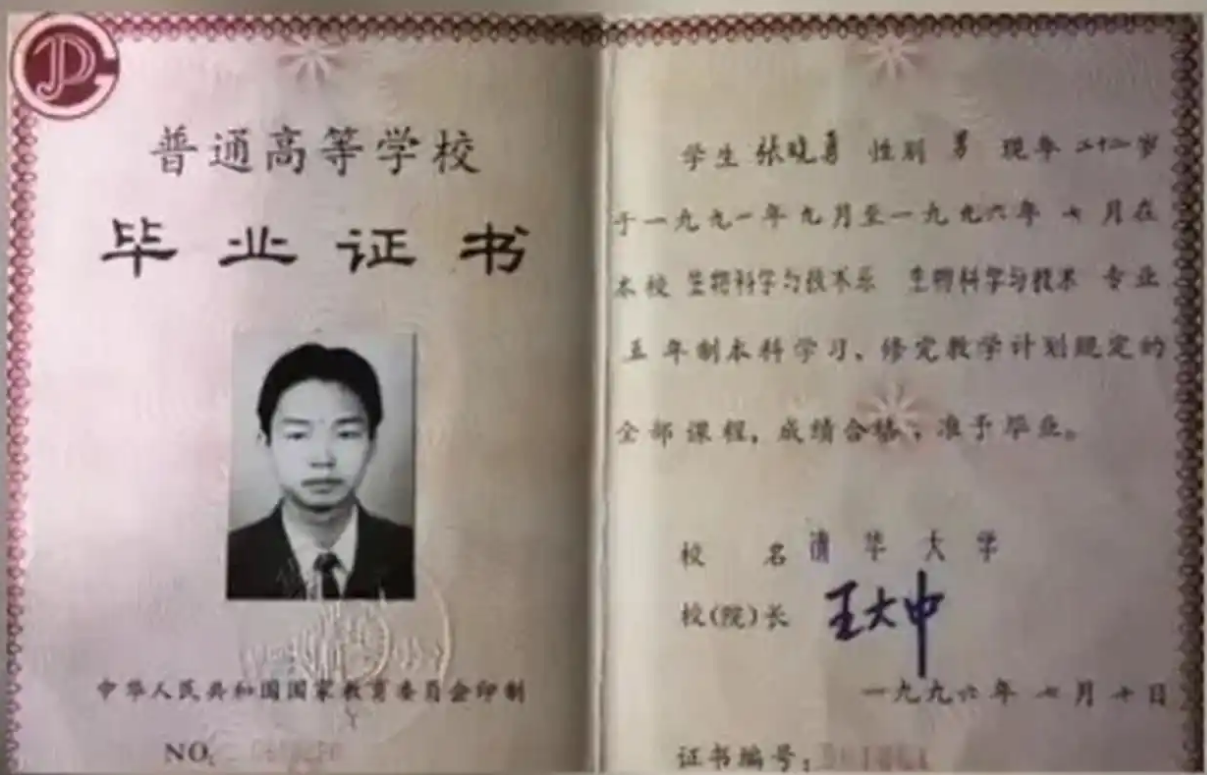 普通高等学校
毕业证书
中华人民共和国国家教育委员会印制
NO.
学生 张晓勇 性别 男 现年 二十二岁
于一九九一年九月至一九九六年 七 月在
本校 生物科学与技术系 生物科学与技术 专业
五 年制本科学习、修完教学计划规定的
全部课程,成绩合格,准予毕业。
校 名 清华大学
校(院)长 王大中
一九九六年 七月十日
证书编号: